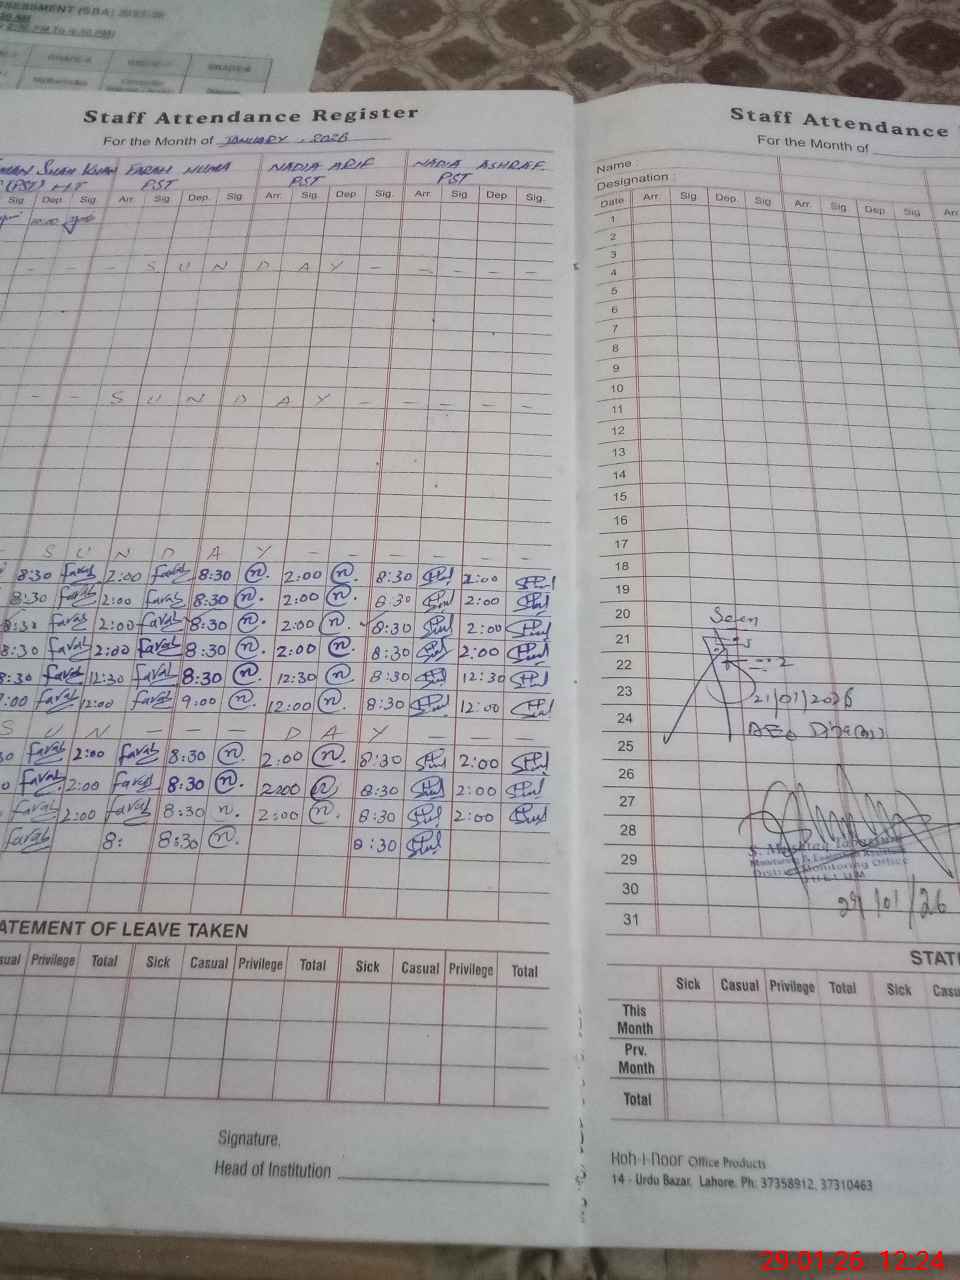 ASSESSMENT (SBA) 2025-26
Staff Attendance Register
For the Month of JANUARY, 2026
SHAH KHAN FARAH NUMA NADIA ARIF NADIA ASHRAF
(PST) PST PST PST
Sig Dep. Sig. Arr. Sig Dep. Sig Arr. Sig. Dep Sig. Arr. Sig Dep Sig.
10:00
- - - S U N D A Y - - - - -
- - S U N D A Y - - - - - -
- S U N D A Y - - - - - -
8:30 Farah 2:00 Farah 8:30 n. 2:00 n. 8:30 2:00
8:30 Farah 2:00 Farah 8:30 n. 2:00 n. 8:30 2:00
8:30 Farah 2:00 Farah 8:30 n. 2:00 n. 8:30 2:00
8:30 Farah 2:00 Farah 8:30 n. 2:00 n. 8:30 2:00
8:30 Farah 12:30 Farah 8:30 n. 12:30 n. 8:30 12:30
Farah 12:00 Farah 9:00 n. 12:00 n. 8:30 12:00
S U N - - - D A Y - - -
Farah 2:00 Farah 8:30 n. 2:00 n. 8:30 2:00
Farah 2:00 Farah 8:30 n. 2:00 n. 8:30 2:00
Farah 2:00 Farah 8:30 n. 2:00 n. 8:30 2:00
Farah 8: 8:30 n. 8:30
STATEMENT OF LEAVE TAKEN
Casual Privilege Total Sick Casual Privilege Total Sick Casual Privilege Total
Signature.
Head of Institution
Staff Attendance
For the Month of
Name
Designation :
Date Arr. Sig Dep. Sig Arr. Sig Dep. Sig Arr.
1
2
3
4
5
6
7
8
9
10
11
12
13
14
15
16
17
18
19
20
Seen
21
22
23
21/01/2026
24
AEO
25
26
27
28
Monitoring & Evaluation
29
District Monitoring Office
JHELUM
30
29/01/26
31
Sick Casual Privilege Total Sick
This Month
Prv. Month
Total
Koh-I-Noor Office Products
14 - Urdu Bazar, Lahore. Ph: 37358912, 37310463
29-01-26 12:24